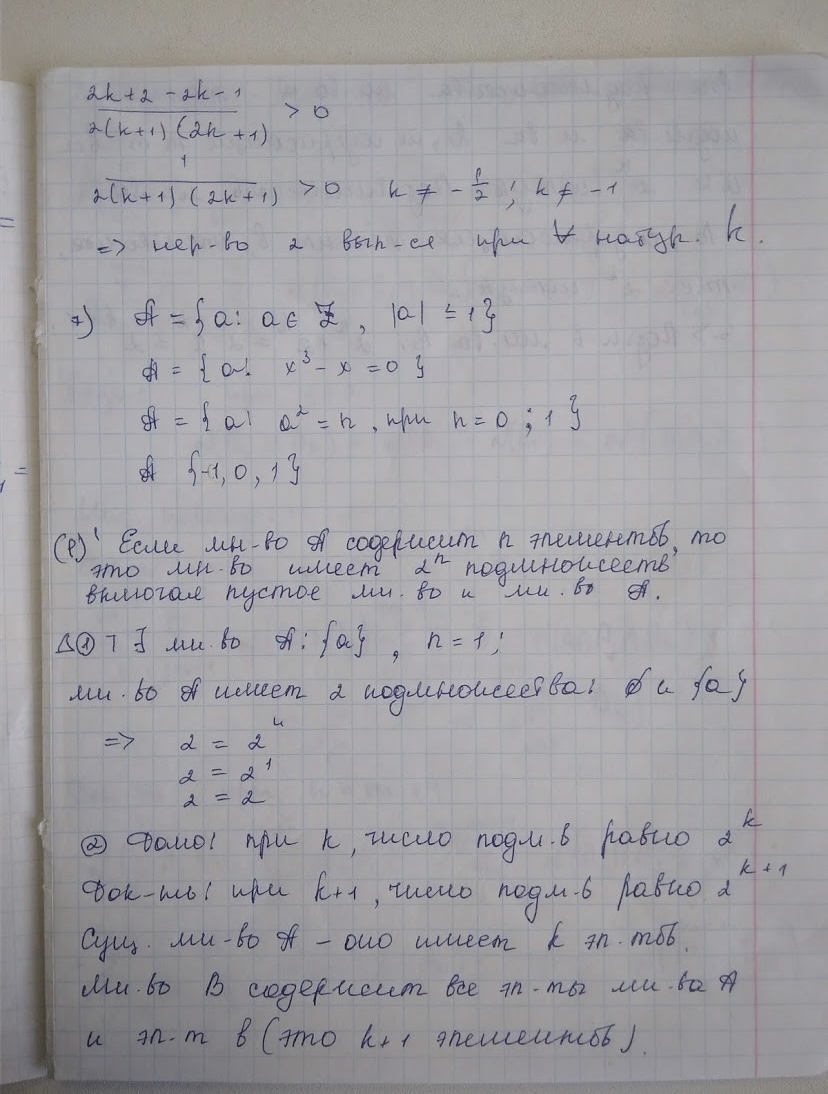 2k+2-2k-1 / 2(k+1)(2k+1) > 0
1 / 2(k+1)(2k+1) > 0 k ≠ -1/2; k ≠ -1
=> нер-во 2 вып-ся при ∀ натур. k.
7) A = {a: a ∈ Z, |a| ≤ 1}
A = {a: x³ - x = 0}
A = {a: a² = n, при n = 0; 1}
A {-1, 0, 1}
Если мн-во A содержит n элементов, то
это мн-во имеет 2ⁿ подмножеств
включая пустое мн-во и мн-во A.
Δ ① ∃ мн-во A: {a}, n = 1;
мн-во A имеет 2 подмножества: ∅ и {a}
=> 2 = 2ⁿ
2 = 2¹
2 = 2
② Дано: при k, число подм-в равно 2^k
Док-ть: при k+1, число подм-в равно 2^(k+1)
Сущ. мн-во A - оно имеет k эл-тов.
Мн-во B содержит все эл-ты мн-ва A
и эл-т в (это k+1 элементов).
=
=